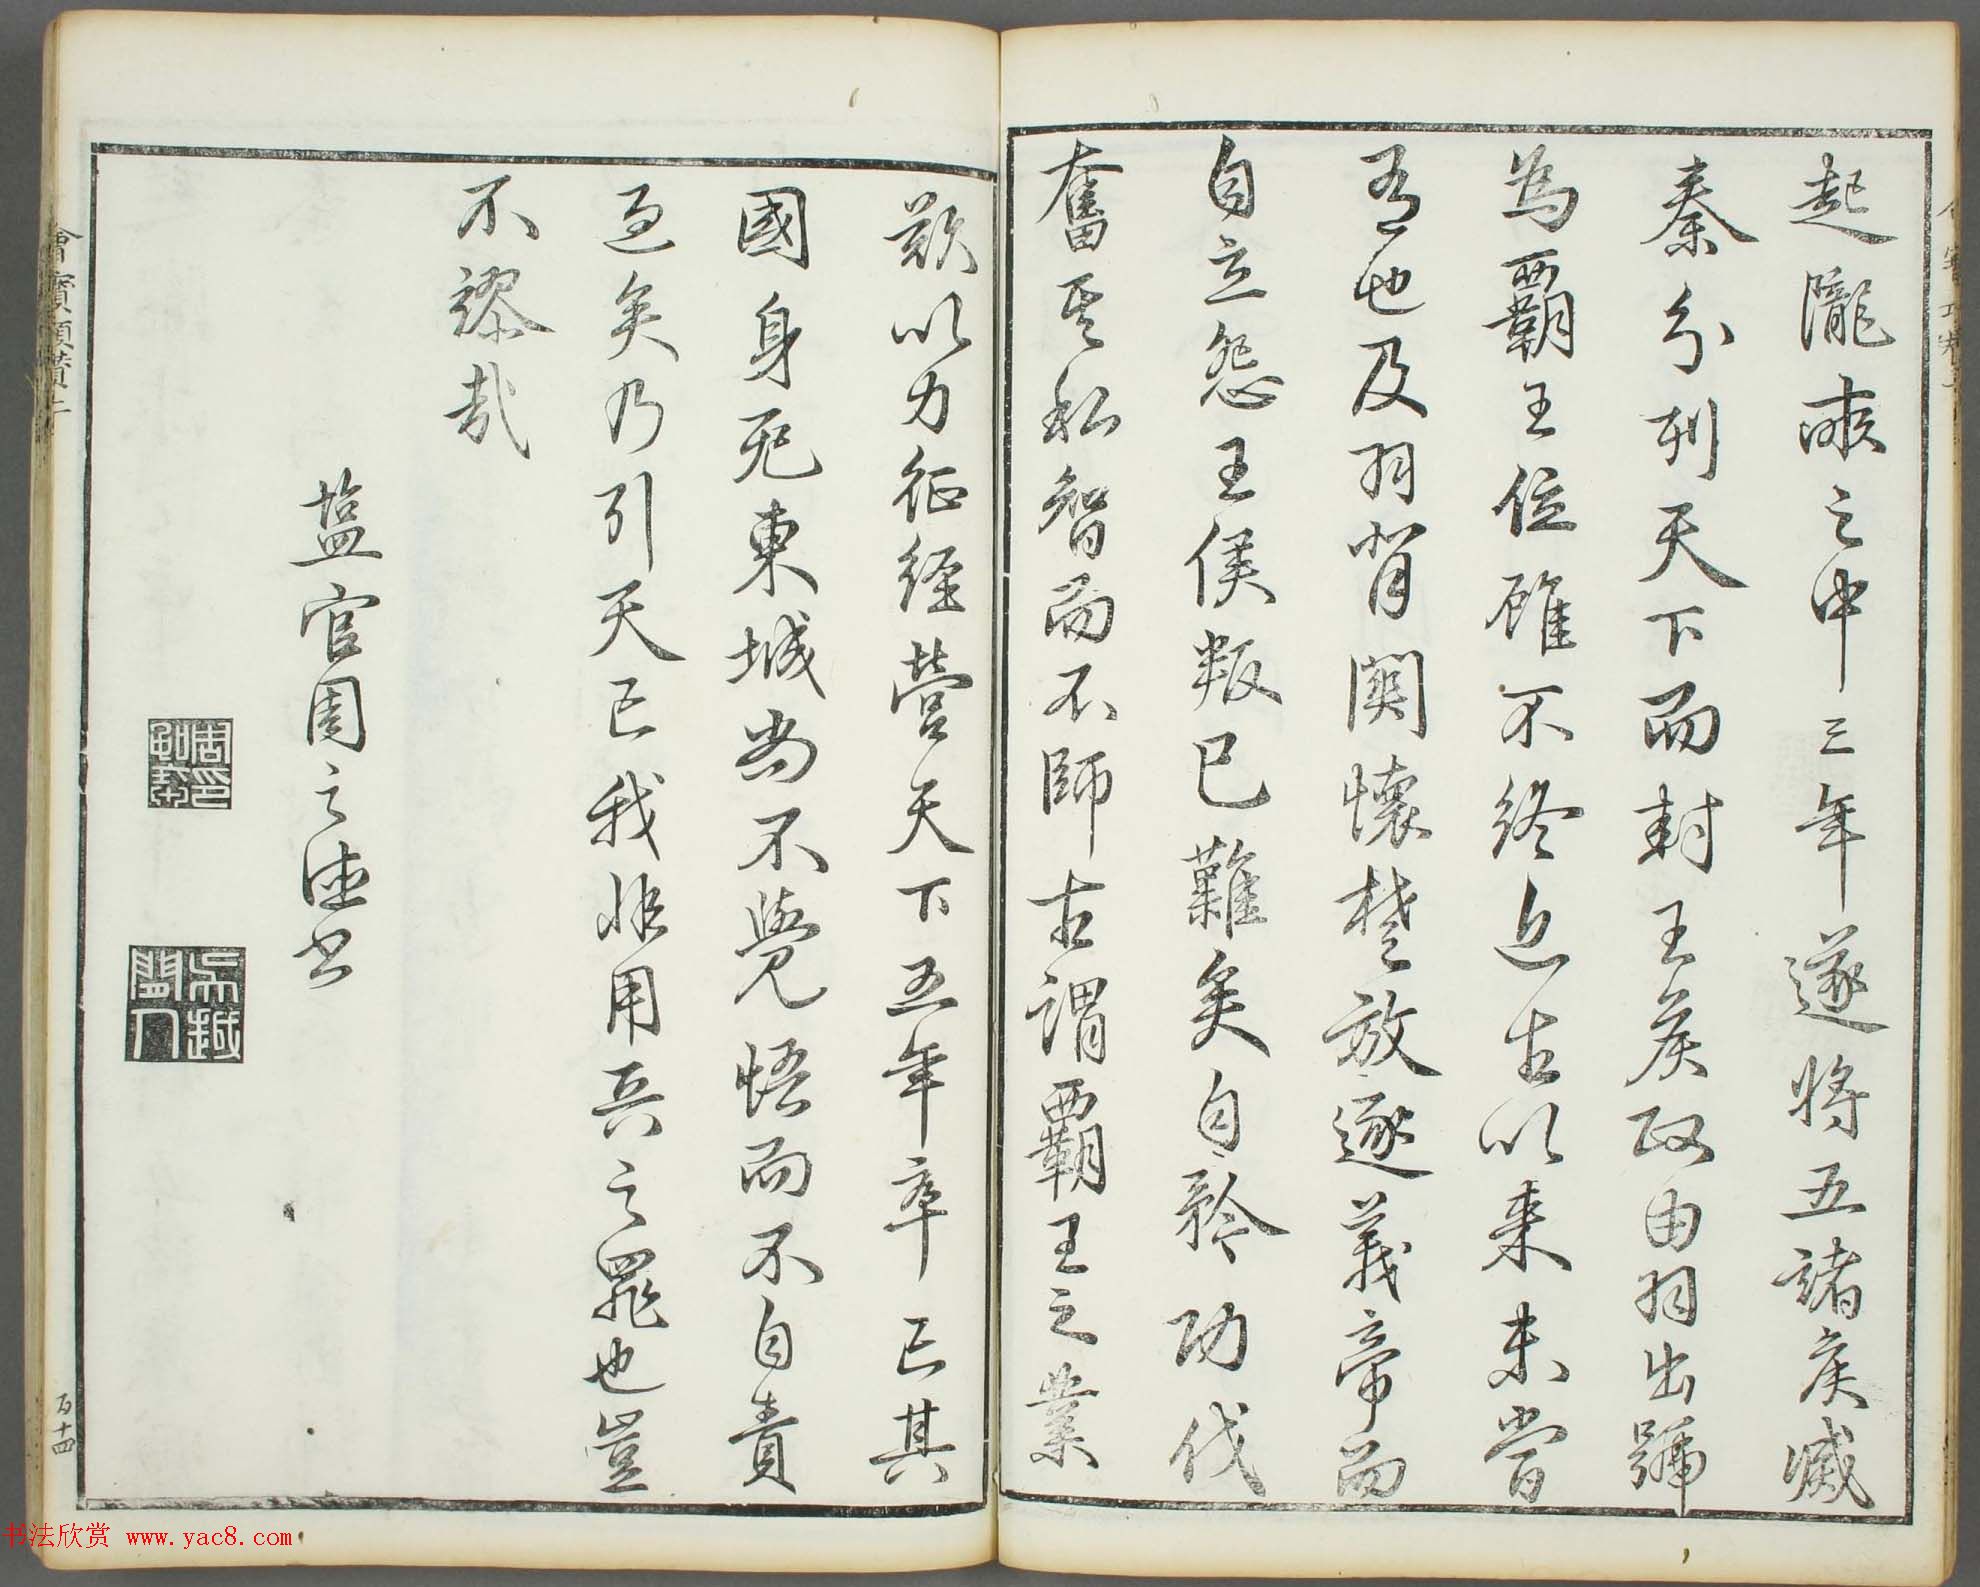 起隴畝之中三年遂將五諸侯滅
秦分列天下而封王侯政由羽出號
為覇王位雖不終近古以來未嘗
有也及羽背關懷楚放逐義帝而
自立怨王侯叛已難矣自矜功伐
奮其私智而不師古謂覇王之業
欲以力征經營天下五年卒亡其
國身死東城尚不覺悟而不自責
過矣乃引天亡我非用兵之罪也豈
不謬哉
塩官周之德書
百十四
书法欣赏 www.yac8.com